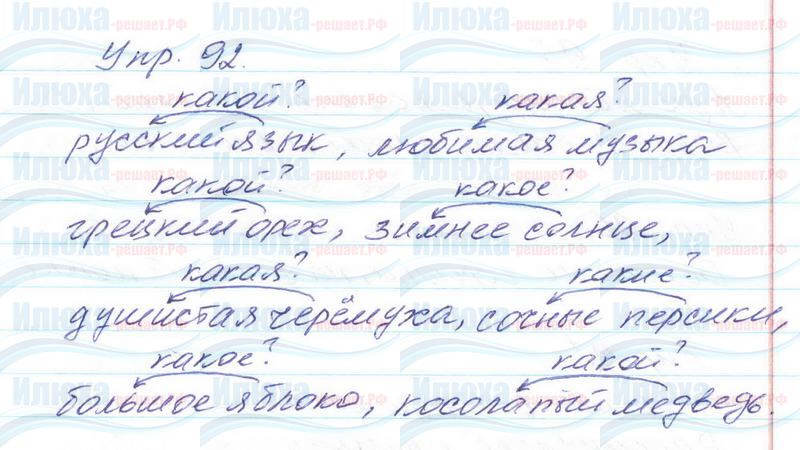 Упр. 92.
какой? какая?
русский язык, любимая музыка
какой? какое?
грецкий орех, зимнее солнце,
какая? какие?
душистая черёмуха, сочные персики,
какое? какой?
большое яблоко, косолапый медведь.